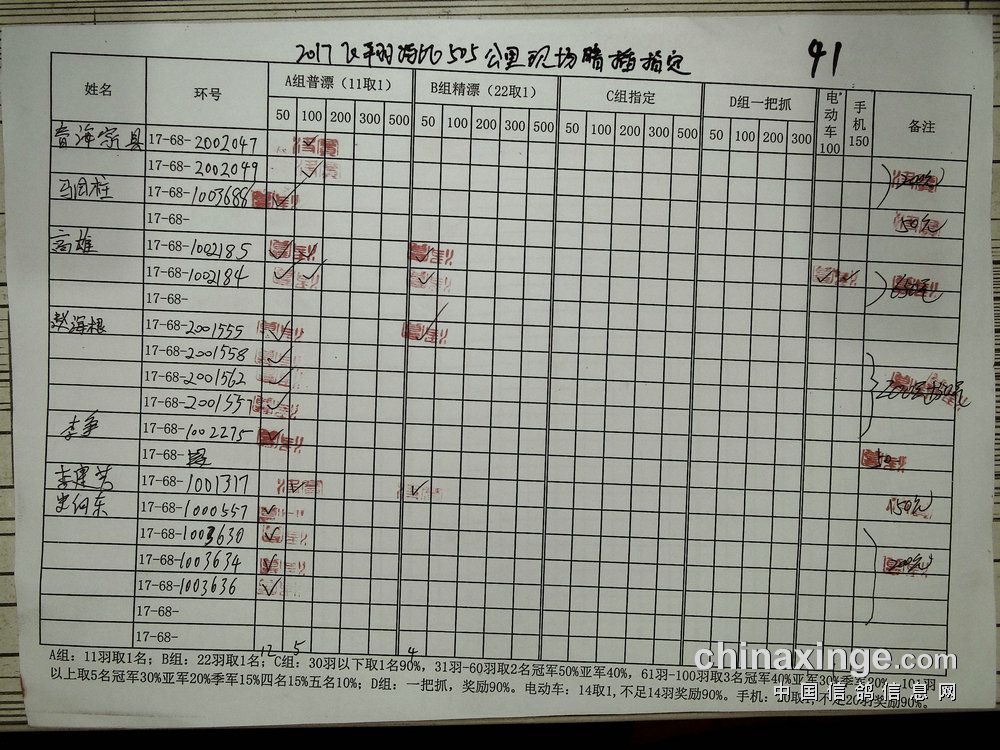 2017 505公里现场 指定 41
姓名 环号 A组普漂（11取1） B组精漂（22取1） C组指定 D组一把抓 电动车100 手机150 备注
50 100 200 300 500 50 100 200 300 500 50 100 200 300 500 50 100 200 300
17-68-2002047
17-68-2002049
17-68-1003688
17-68- 150元
高雄 17-68-1002185
17-68-1002184
17-68-
彭海根 17-68-2001555
17-68-2001558
17-68-2001562
17-68-2001557
李争 17-68-1002275
17-68- 50
李建芳 17-68-1001317
史何东 17-68-1000557 150元
17-68-1003630
17-68-1003634
17-68-1003636
17-68-
17-68-
12 5 4
A组：11羽取1名；B组：22羽取1名；C组：30羽以下取1名90%，31羽-60羽取2名冠军50%亚军40%，61羽-100羽取3名冠军40%亚军30%季军20%，101羽
以上取5名冠军30%亚军20%季军15%四名15%五名10%；D组：一把抓，奖励90%。电动车：14取1,不足14羽奖励90%。手机：20取1,不足20羽奖励90%。
chinaxinge.com
中国信鸽信息网